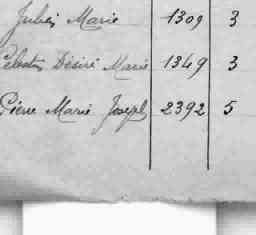 Jules Marie 1309 3
Célestin Désiré Marie 1349 3
Pierre Marie Joseph 2392 5